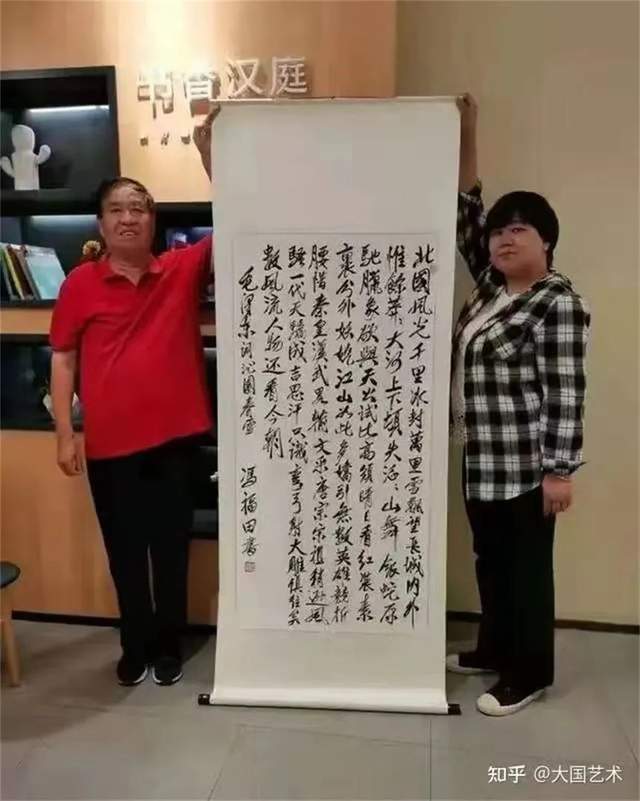 书香汉庭
北國風光千里冰封萬里雪飄望長城内外
惟餘莽〻大河上下頓失滔〻山舞銀蛇原
馳臘象欲與天公試比高須晴日看紅裝素
裹分外妖嬈江山如此多嬌引無數英雄競折
腰惜秦皇漢武略輸文采唐宗宋祖稍遜風
騷一代天驕成吉思汗只識彎弓射大雕俱往矣
數風流人物還看今朝
毛澤東詞沁園春雪 馮福田書
知乎 @大国艺术